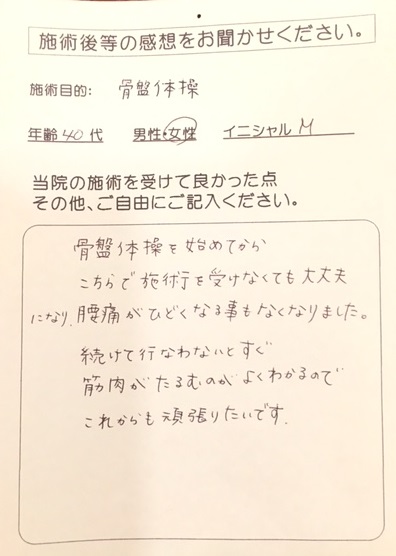 施術後等の感想をお聞かせください。
施術目的: 骨盤体操
年齢 40 代 男性・女性 イニシャル M
当院の施術を受けて良かった点
その他、ご自由にご記入ください。
骨盤体操を始めてから
こちらで施術を受けなくても大丈夫
になり、腰痛がひどくなる事もなくなりました。
続けて行なわないとすぐ
筋肉がたるむのがよくわかるので
これからも頑張りたいです。